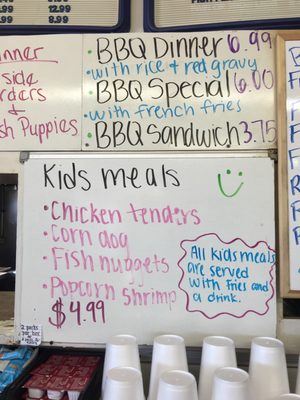 8.99
12.99
8.99
BBQ Dinner 6.99
• with rice & red gravy
• BBQ Special 6.00
• with french fries
• BBQ Sandwich 3.75
nner
side
rders
&
sh Puppies
Kids meals
• Chicken tenders
• Corn dog
• Fish nuggets
• Popcorn Shrimp
$4.99
All kids meals
are served
with fries and
a drink.
2 packs
per box